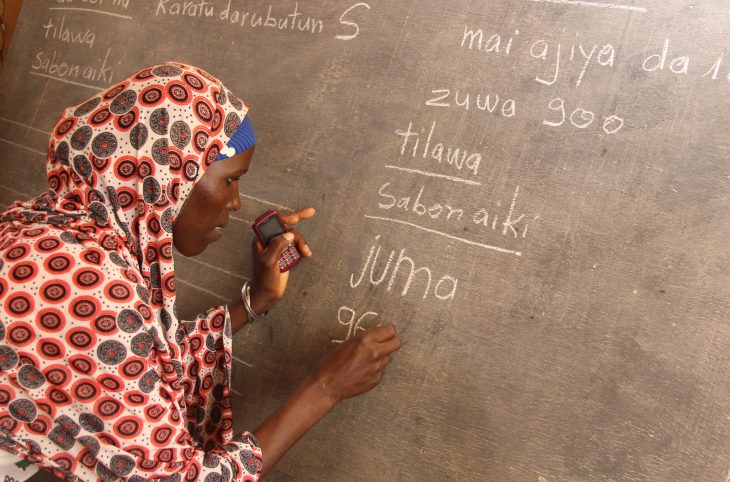 Karatu darubutun 5
tilawa
Sabon aiki
mai ajiya da
zuwa 900
tilawa
Sabon aiki
juma
96